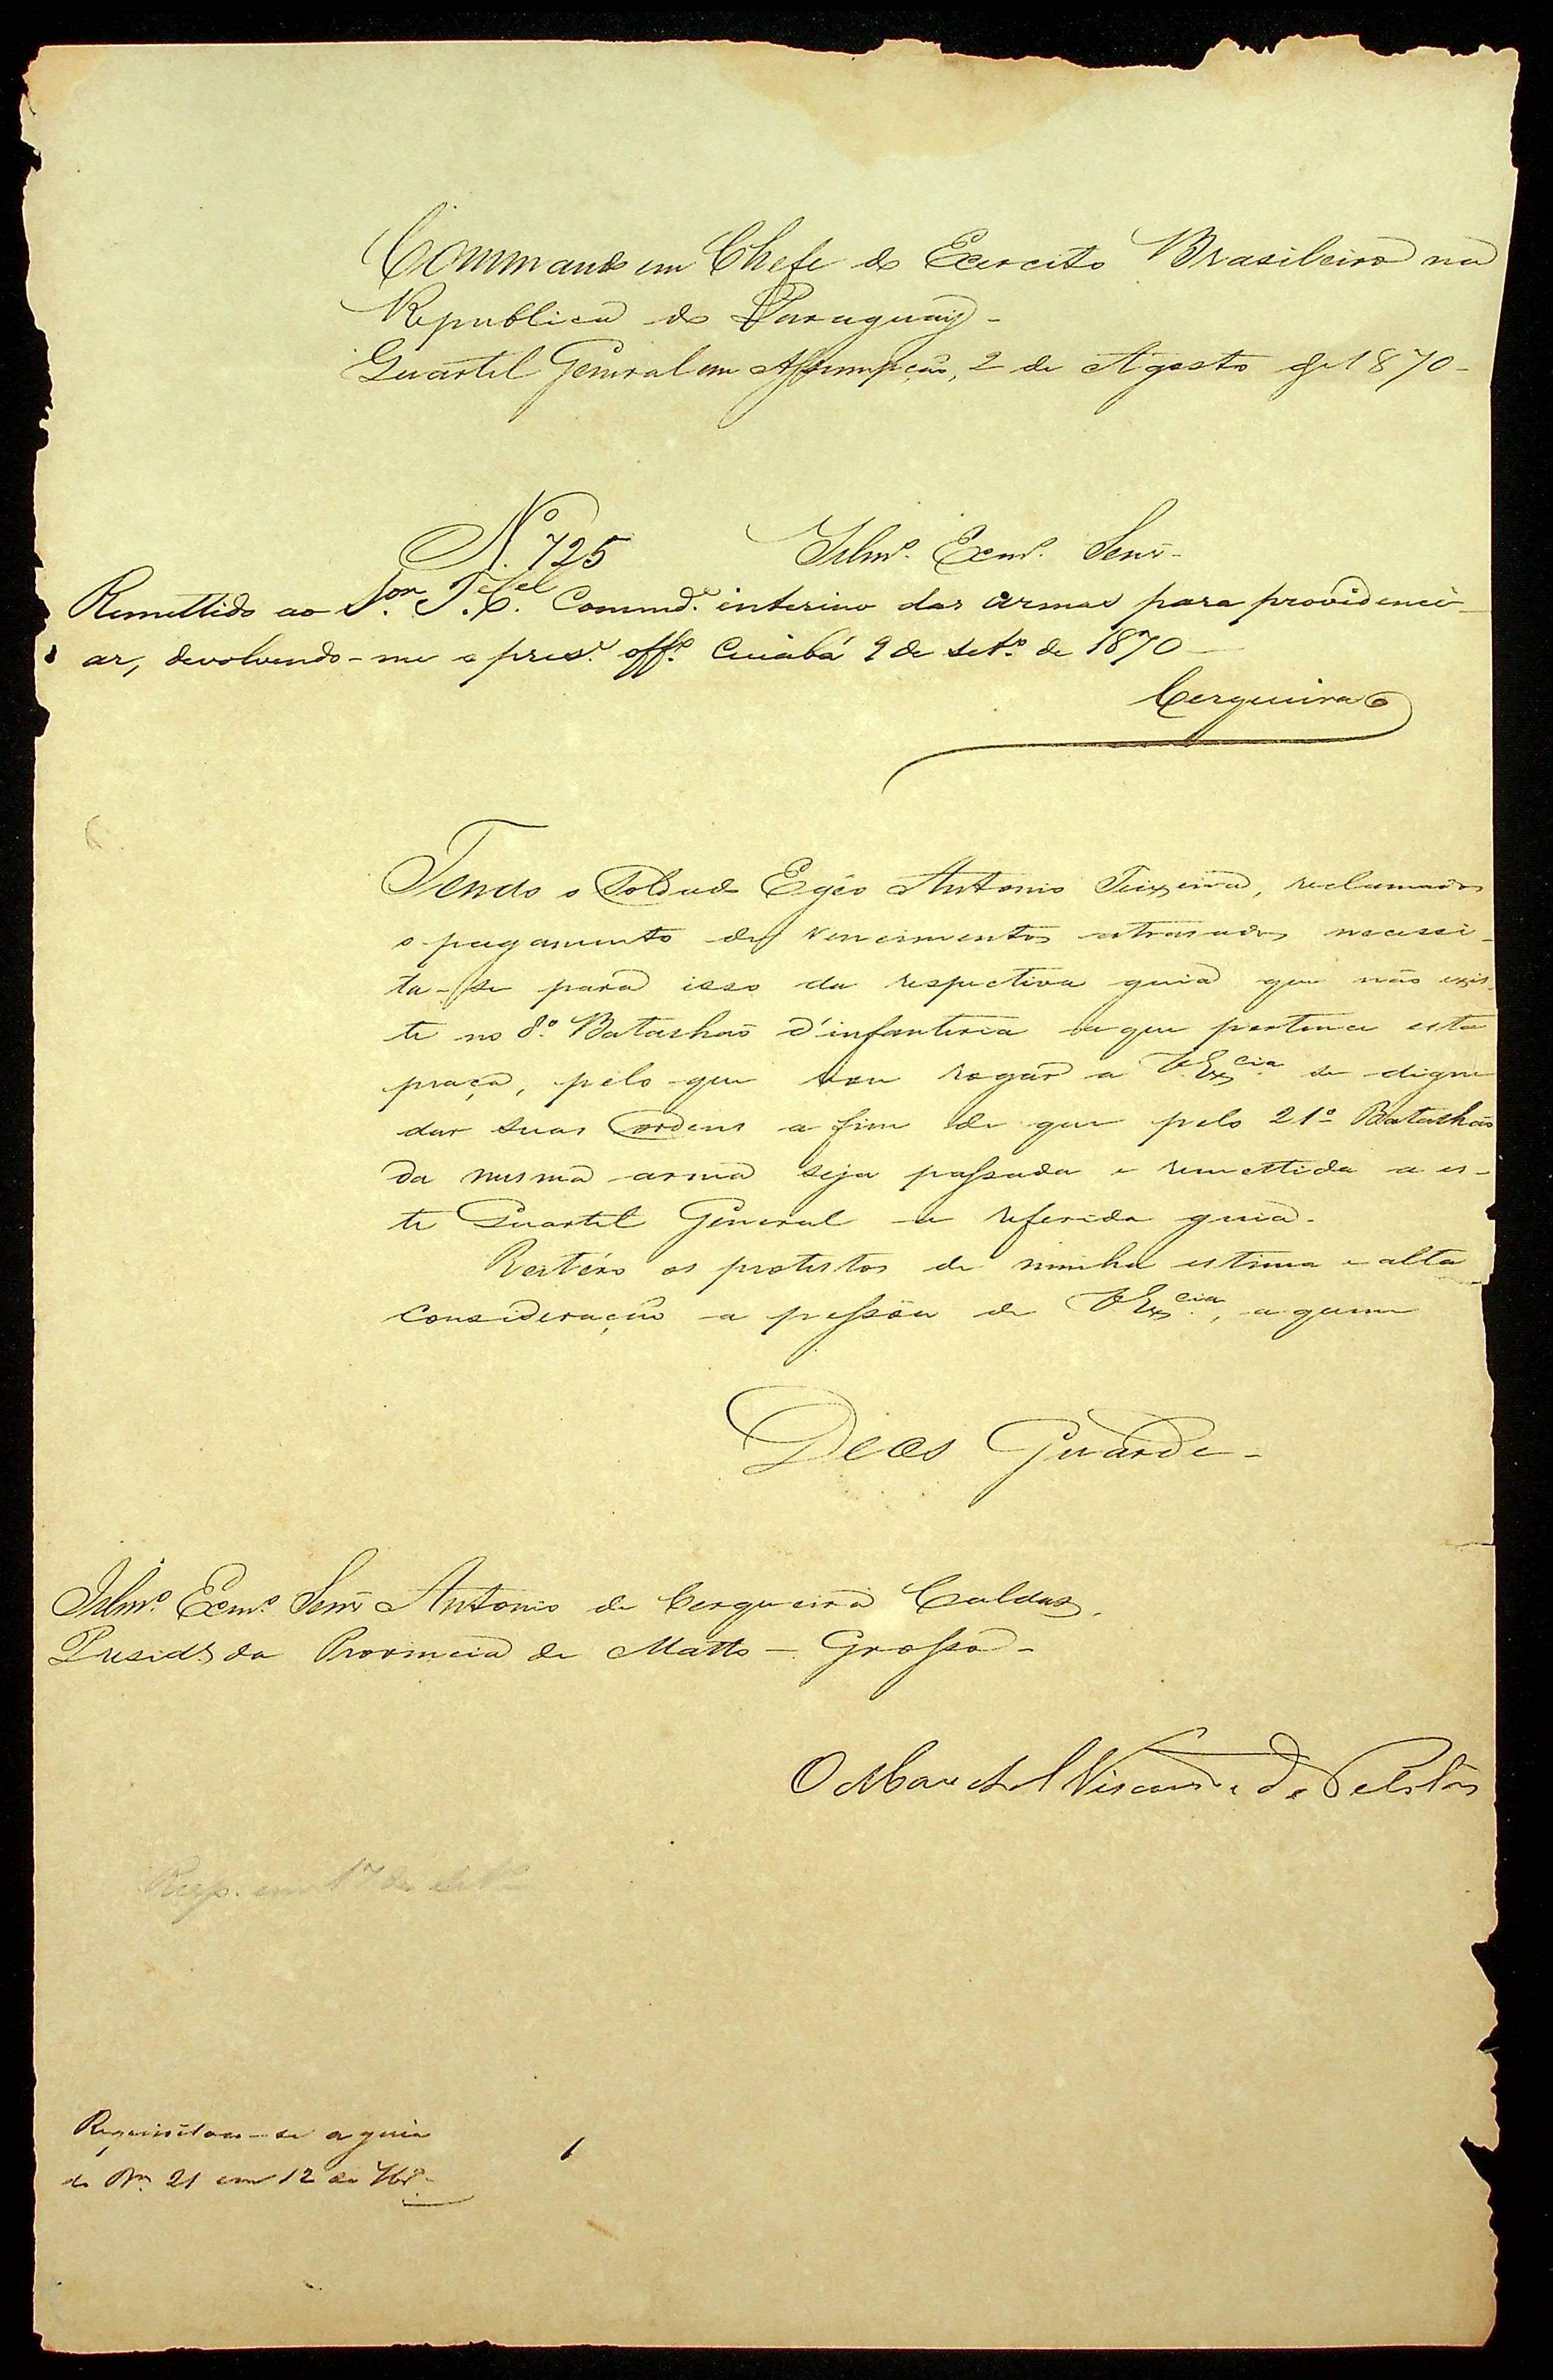 Commando em Chefe do Exercito Brasileiro na
Republica do Paraguay -
Quartel General em Assumpção, 2 de Agosto de 1870 -
Nº 725
Illmº. Exmº. Senr -
Remettido ao Sor. Te. Cel. Commde. interino das armas para providenci-
ar, devolvendo-me o prese. offº. Cuiabá 9 de Setº. de 1870 -
Cerqueira
Tendo o Soldado Egéo Antonio Teixeira, reclamado
o pagamento de vencimentos atrasados necessi-
ta-se para isso da respectiva guia que não exis-
te no 8º. Batalhão d'infanteria a que pertence esta
praça, pelo que vou rogar a V. Excia. se digne
dar suas ordens a fim de que pelo 21º Batalhão
da mesma arma seja passada e remettida a es-
te Quartel General a referida guia.
Reitéro os protestos de minha estima e alta
consideração a pessôa de V. Excia., a quem
Deos Guarde -
Illmº. Exmº. Senr Antonio de Cerqueira Caldas,
Preside. da Provincia de Matto - Grosso -
O Marechal Visconde de Pelotas
Resp. em 17 de Setº
Requisitou-se a guia
do Bm. 21 em 12 de 7brº.